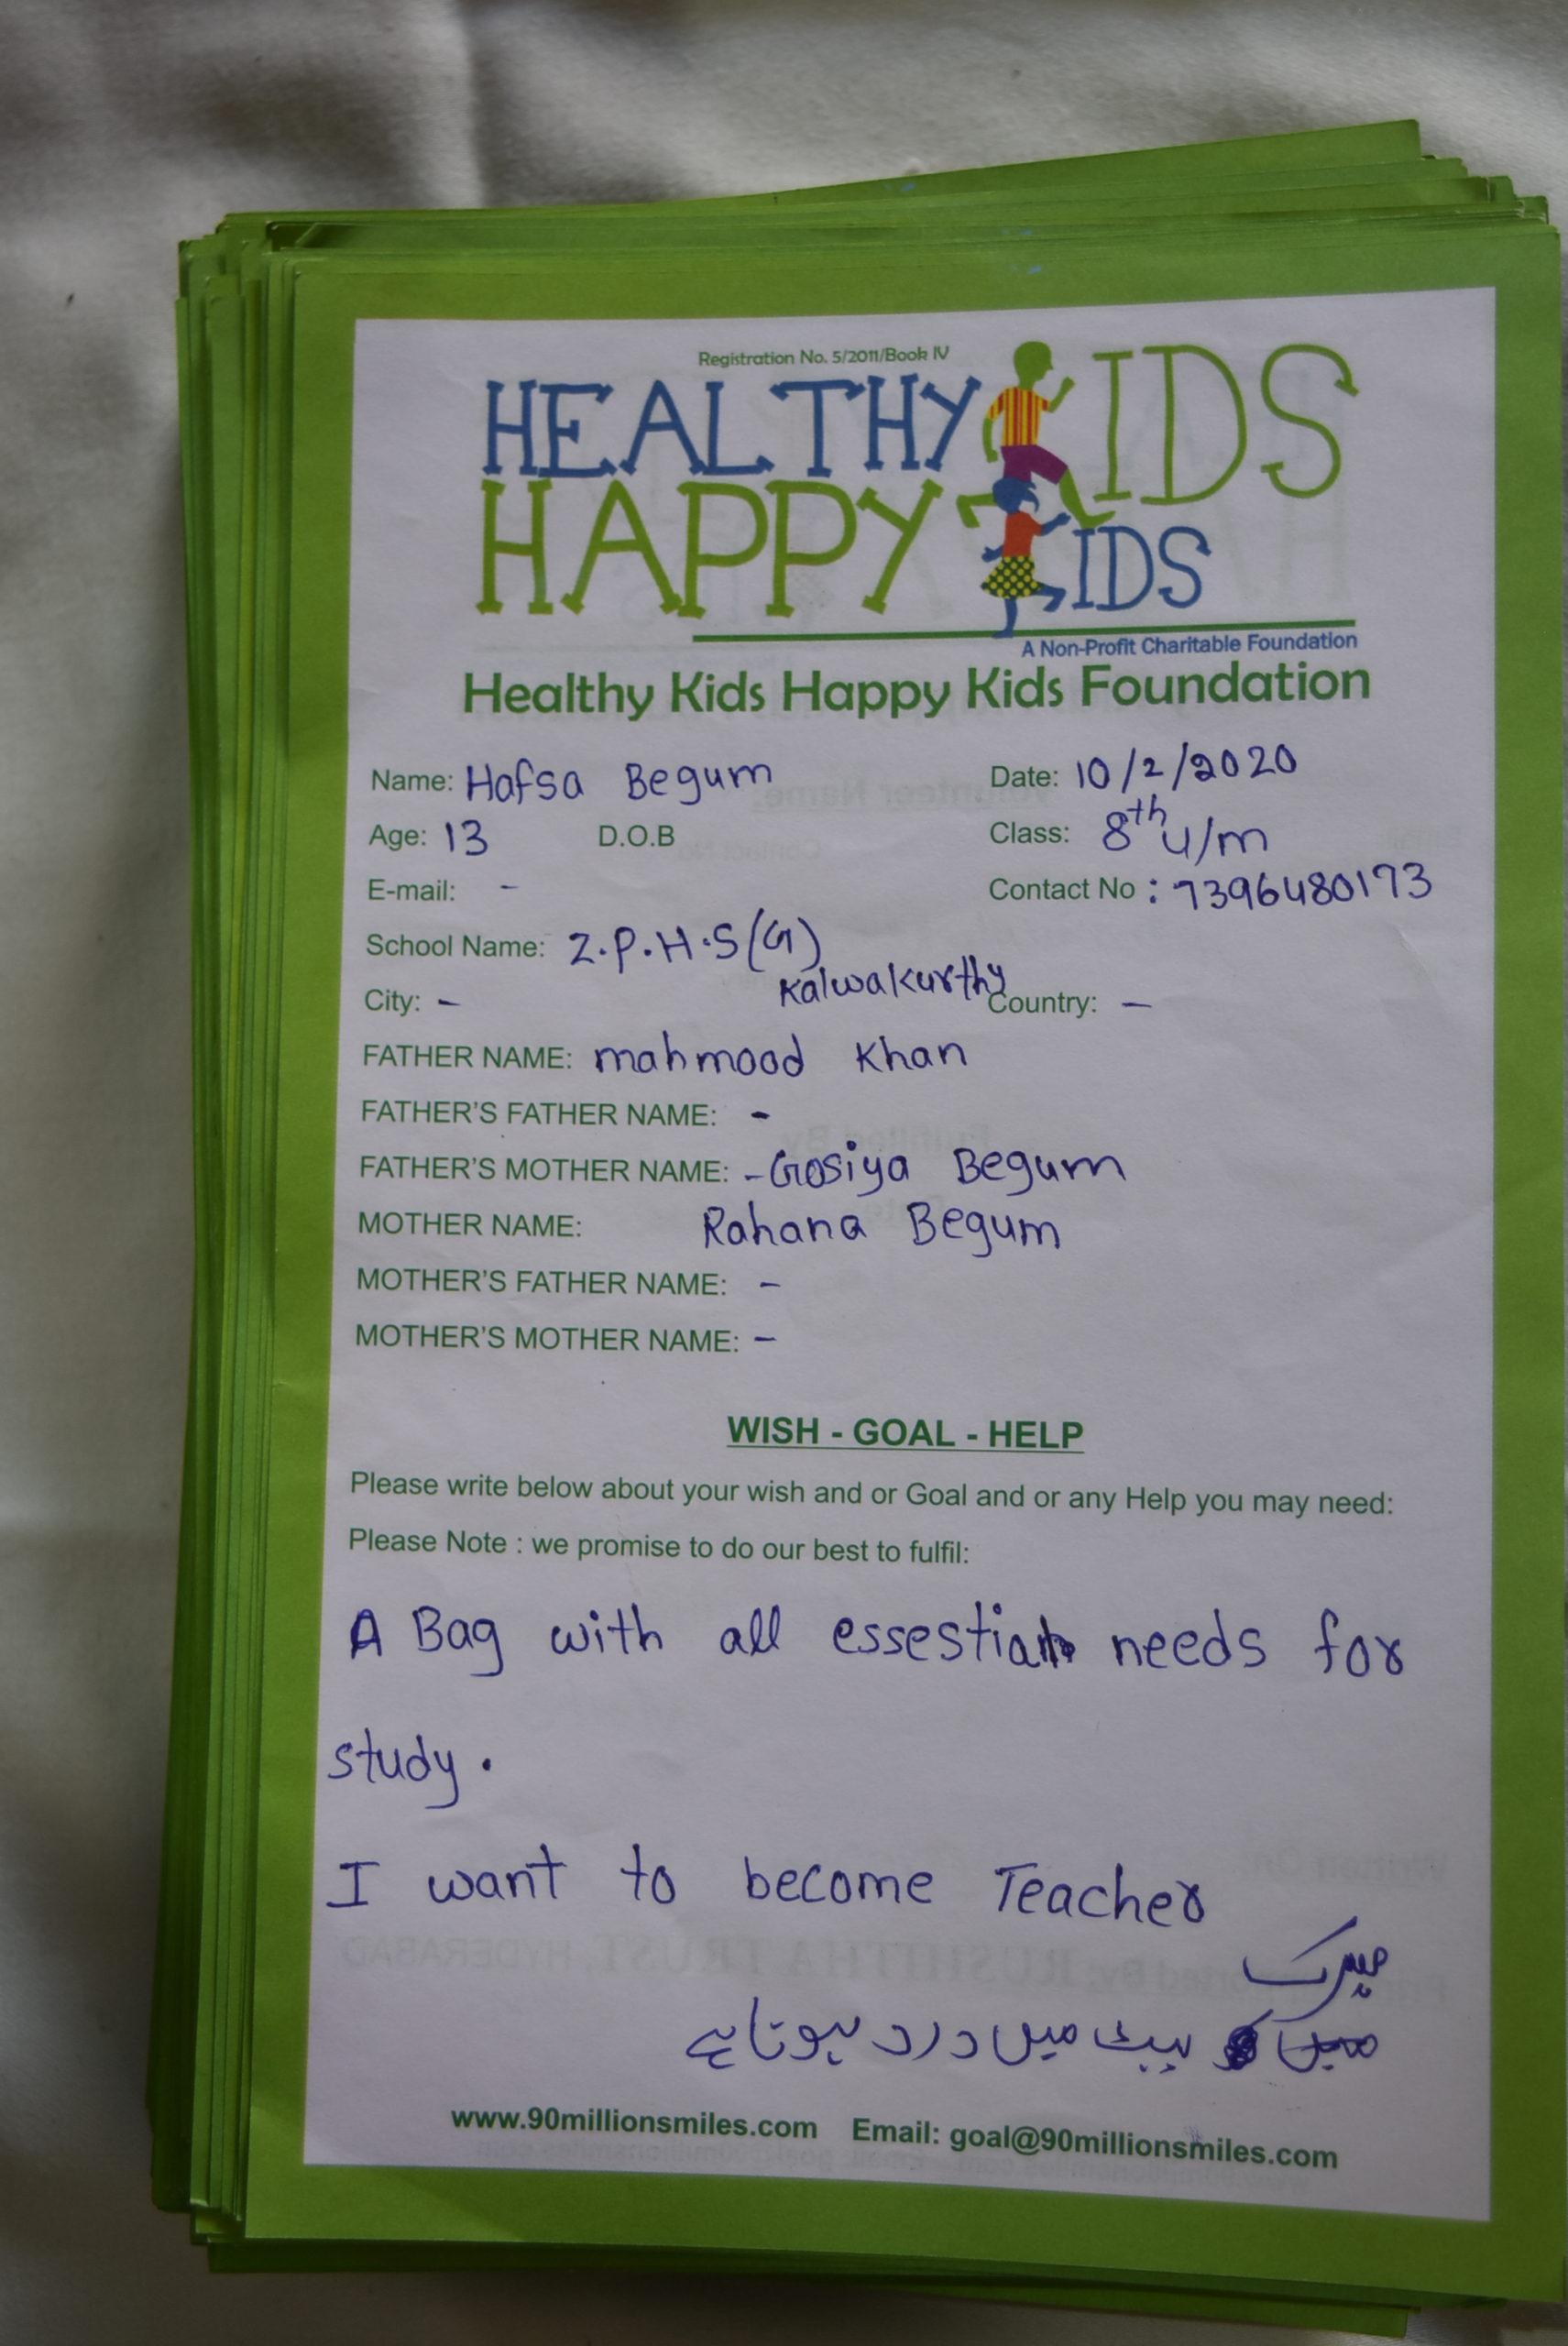 Registration No. 5/2011/Book IV
HEALTHY KIDS
HAPPY KIDS
A Non-Profit Charitable Foundation
Healthy Kids Happy Kids Foundation
Name: Hafsa Begum Date: 10/2/2020
Age: 13 D.O.B Class: 8th U/m
E-mail: - Contact No : 7396480173
School Name: Z.P.H.S(G)
Kalwakurthy
City: - Country: -
FATHER NAME: mahmood Khan
FATHER'S FATHER NAME: -
FATHER'S MOTHER NAME: - Gosiya Begum
MOTHER NAME: Rahana Begum
MOTHER'S FATHER NAME: -
MOTHER'S MOTHER NAME: -
WISH - GOAL - HELP
Please write below about your wish and or Goal and or any Help you may need:
Please Note : we promise to do our best to fulfil:
A Bag with all essestial needs for
study.
I want to become Teacher
میرے
پیٹ میں درد ہوتا ہے
www.90millionsmiles.com Email: goal@90millionsmiles.com